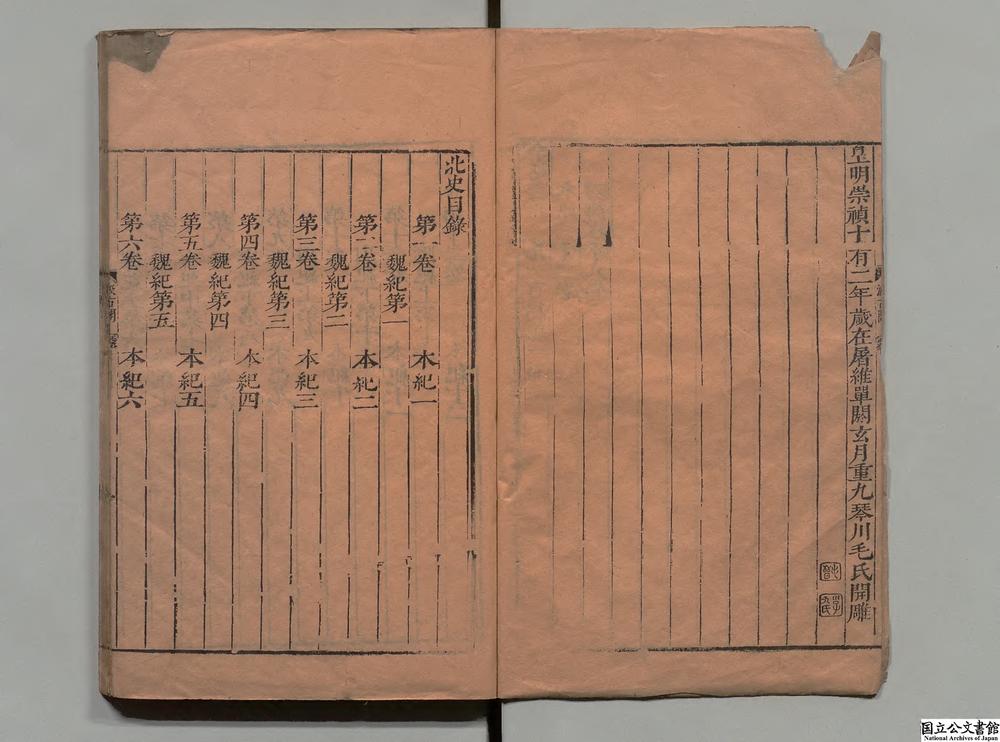 皇明崇禎十有二年歲在屠維單閼玄月重九琴川毛氏開雕
北史目錄
第一卷 本紀一
魏紀第一
第二卷 本紀二
魏紀第二
第三卷 本紀三
魏紀第三
第四卷 本紀四
魏紀第四
第五卷 本紀五
魏紀第五
第六卷 本紀六
国立公文書館
National Archives of Japan